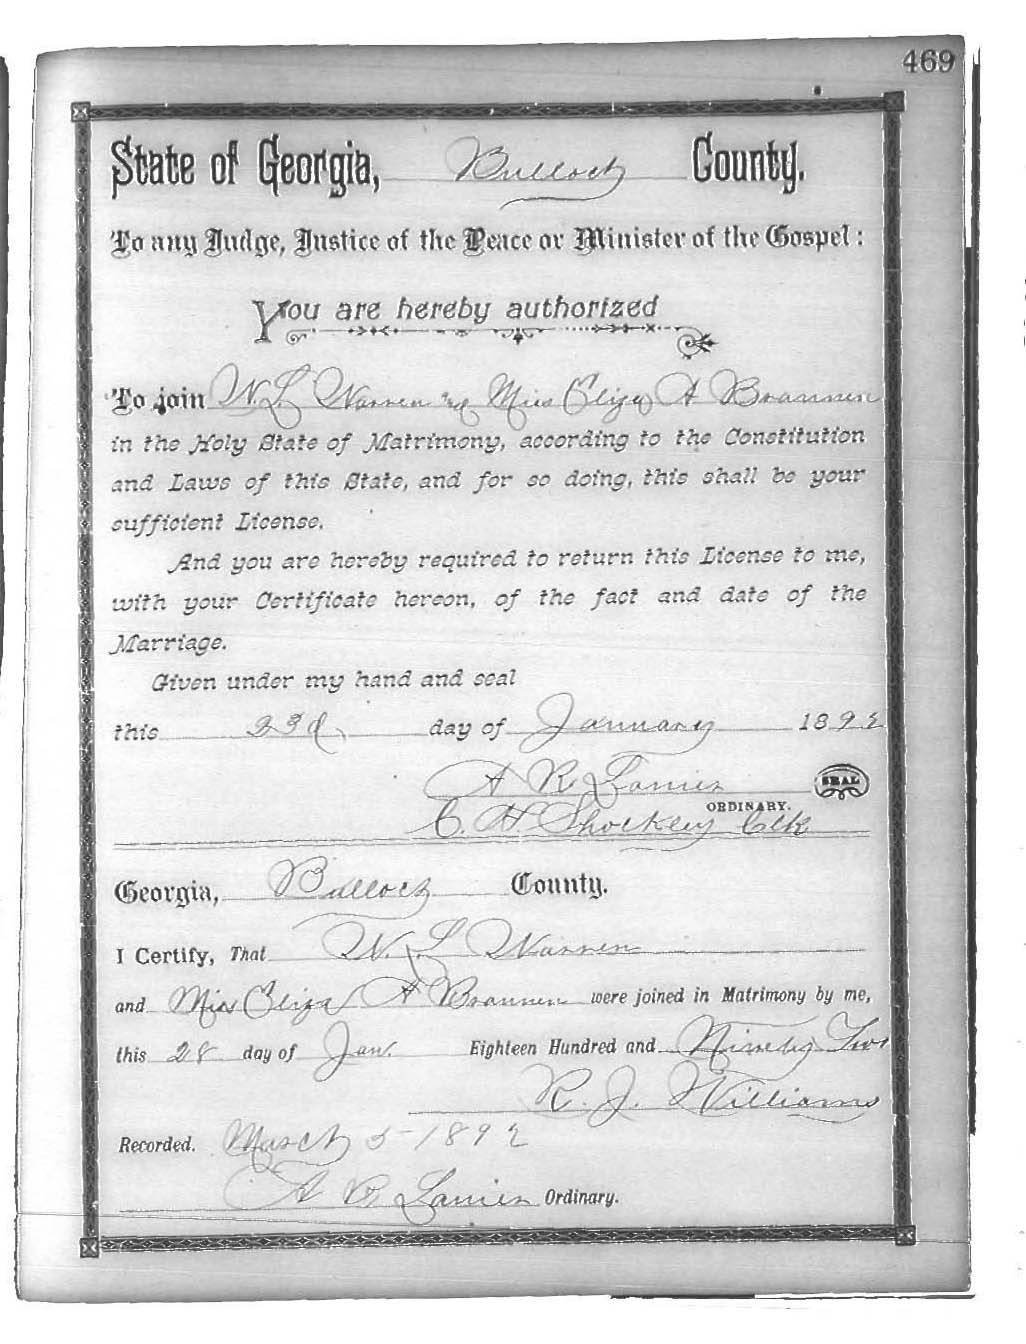 469
State of Georgia, Bulloch County.
To any Judge, Justice of the Peace or Minister of the Gospel:
You are hereby authorized
To join W. L Warren and Miss Eliza A Brannen
in the Holy State of Matrimony, according to the Constitution
and Laws of this State, and for so doing, this shall be your
sufficient License.
And you are hereby required to return this License to me,
with your Certificate hereon, of the fact and date of the
Marriage.
Given under my hand and seal
this 23d day of January 1892
A R Lanier SEAL
ORDINARY.
C. H Shockley Clk
Georgia, Bulloch County.
I Certify, That W. L Warren
and Miss Eliza A Brannen were joined in Matrimony by me,
this 28 day of Jan. Eighteen Hundred and Ninedy Two
R. J. Williams
Recorded. March 5 1892
A R Lanier Ordinary.